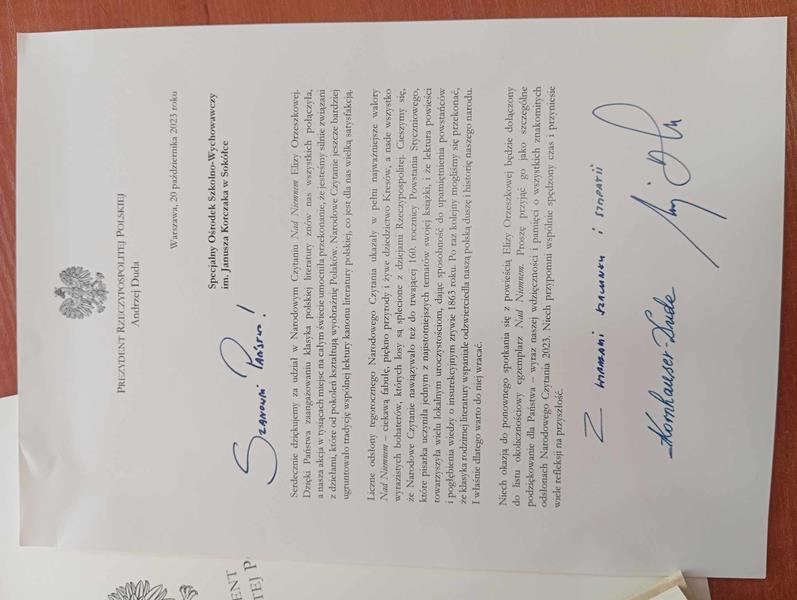 PREZYDENT RZECZYPOSPOLITEJ POLSKIEJ
Andrzej Duda
Warszawa, 20 października 2023 roku
Specjalny Ośrodek Szkolno-Wychowawczy
im. Janusza Korczaka w Sokółce
Szanowni Państwo!
Serdecznie dziękujemy za udział w Narodowym Czytaniu Nad Niemnem Elizy Orzeszkowej.
Dzięki Państwa zaangażowaniu klasyka polskiej literatury znów nas wszystkich połączyła,
a nasza akcja w tysiącach miejsc na całym świecie umocniła przekonanie, że jesteśmy silnie związani
z dziełami, które od pokoleń kształtują wyobraźnię Polaków. Narodowe Czytanie jeszcze bardziej
ugruntowało tradycję wspólnej lektury kanonu literatury polskiej, co jest dla nas wielką satysfakcją.
Liczne odsłony tegorocznego Narodowego Czytania ukazały w pełni najważniejsze walory
Nad Niemnem – ciekawą fabułę, piękno przyrody i żywe dziedzictwo Kresów, a nade wszystko
wyrazistych bohaterów, których losy są splecione z dziejami Rzeczypospolitej. Cieszymy się,
że Narodowe Czytanie nawiązywało też do trwającej 160. rocznicy Powstania Styczniowego,
które pisarka uczyniła jednym z najistotniejszych tematów swojej książki, i że lektura powieści
towarzyszyła wielu lokalnym uroczystościom, dając sposobność do upamiętnienia powstańców
i pogłębienia wiedzy o insurekcyjnym zrywie 1863 roku. Po raz kolejny mogliśmy się przekonać,
że klasyka rodzimej literatury wspaniale odzwierciedla naszą polską duszę i historię naszego narodu.
I właśnie dlatego warto do niej wracać.
Niech okazją do ponownego spotkania się z powieścią Elizy Orzeszkowej będzie dołączony
do listu okolicznościowy egzemplarz Nad Niemnem. Proszę przyjąć go jako szczególne
podziękowanie dla Państwa – wyraz naszej wdzięczności i pamięci o wszystkich znakomitych
odsłonach Narodowego Czytania 2023. Niech przypomni wspólnie spędzony czas i przyniesie
wiele refleksji na przyszłość.
Z wyrazami szacunku i sympatii
Kornhauser-Duda
ENT
TEJ P